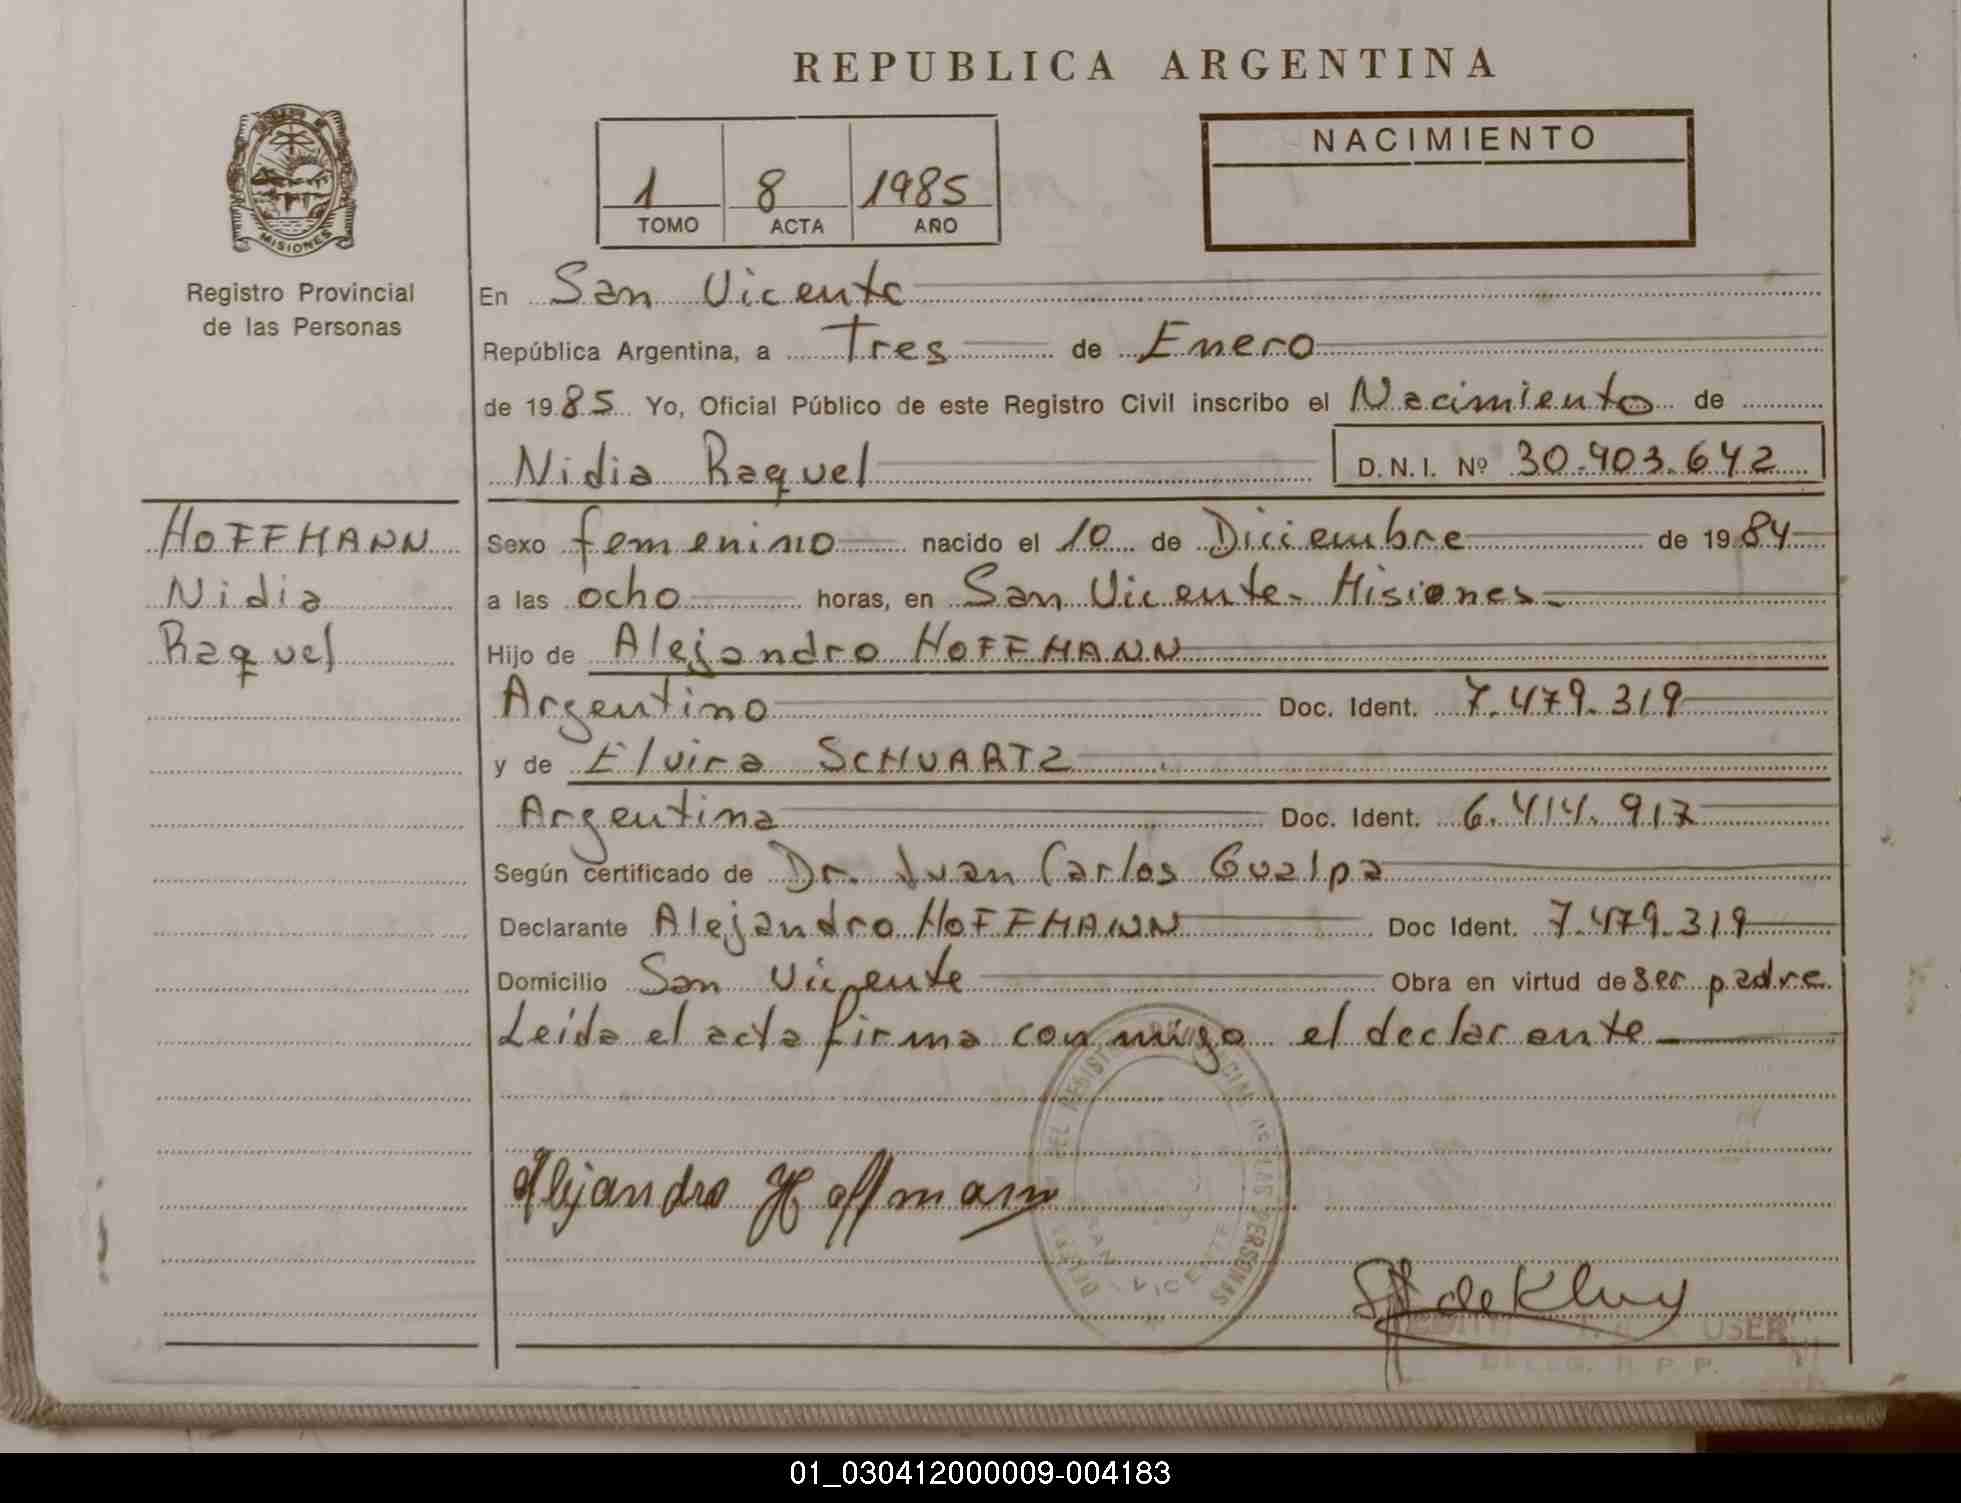 REPUBLICA ARGENTINA
MISIONES
Registro Provincial
de las Personas
1 8 1985
TOMO ACTA AÑO
NACIMIENTO
En San Vicente
República Argentina, a Tres de Enero
de 1985 Yo, Oficial Público de este Registro Civil inscribo el Nacimiento de
Nidia Raquel D.N.I. Nº 30.903.642
HOFFMANN
Nidia
Raquel
Sexo femenino nacido el 10 de Diciembre de 1984
a las ocho horas, en San Vicente - Misiones
Hijo de Alejandro HOFFMANN
Argentino Doc. Ident. 7.479.319
y de Elvira SCHUARTZ
Argentina Doc. Ident. 6.414.917
Según certificado de Dr. Juan Carlos Gualpa
Declarante Alejandro HOFFMANN Doc Ident. 7.479.319
Domicilio San Vicente Obra en virtud de ser padre.
Leída el acta firma conmigo el declarante
Alejandro Hoffmann
DEL REGISTRO PROVINCIAL DE LAS PERSONAS
SAN VICENTE
de
DELEG. R. P. P.
01_030412000009-004183